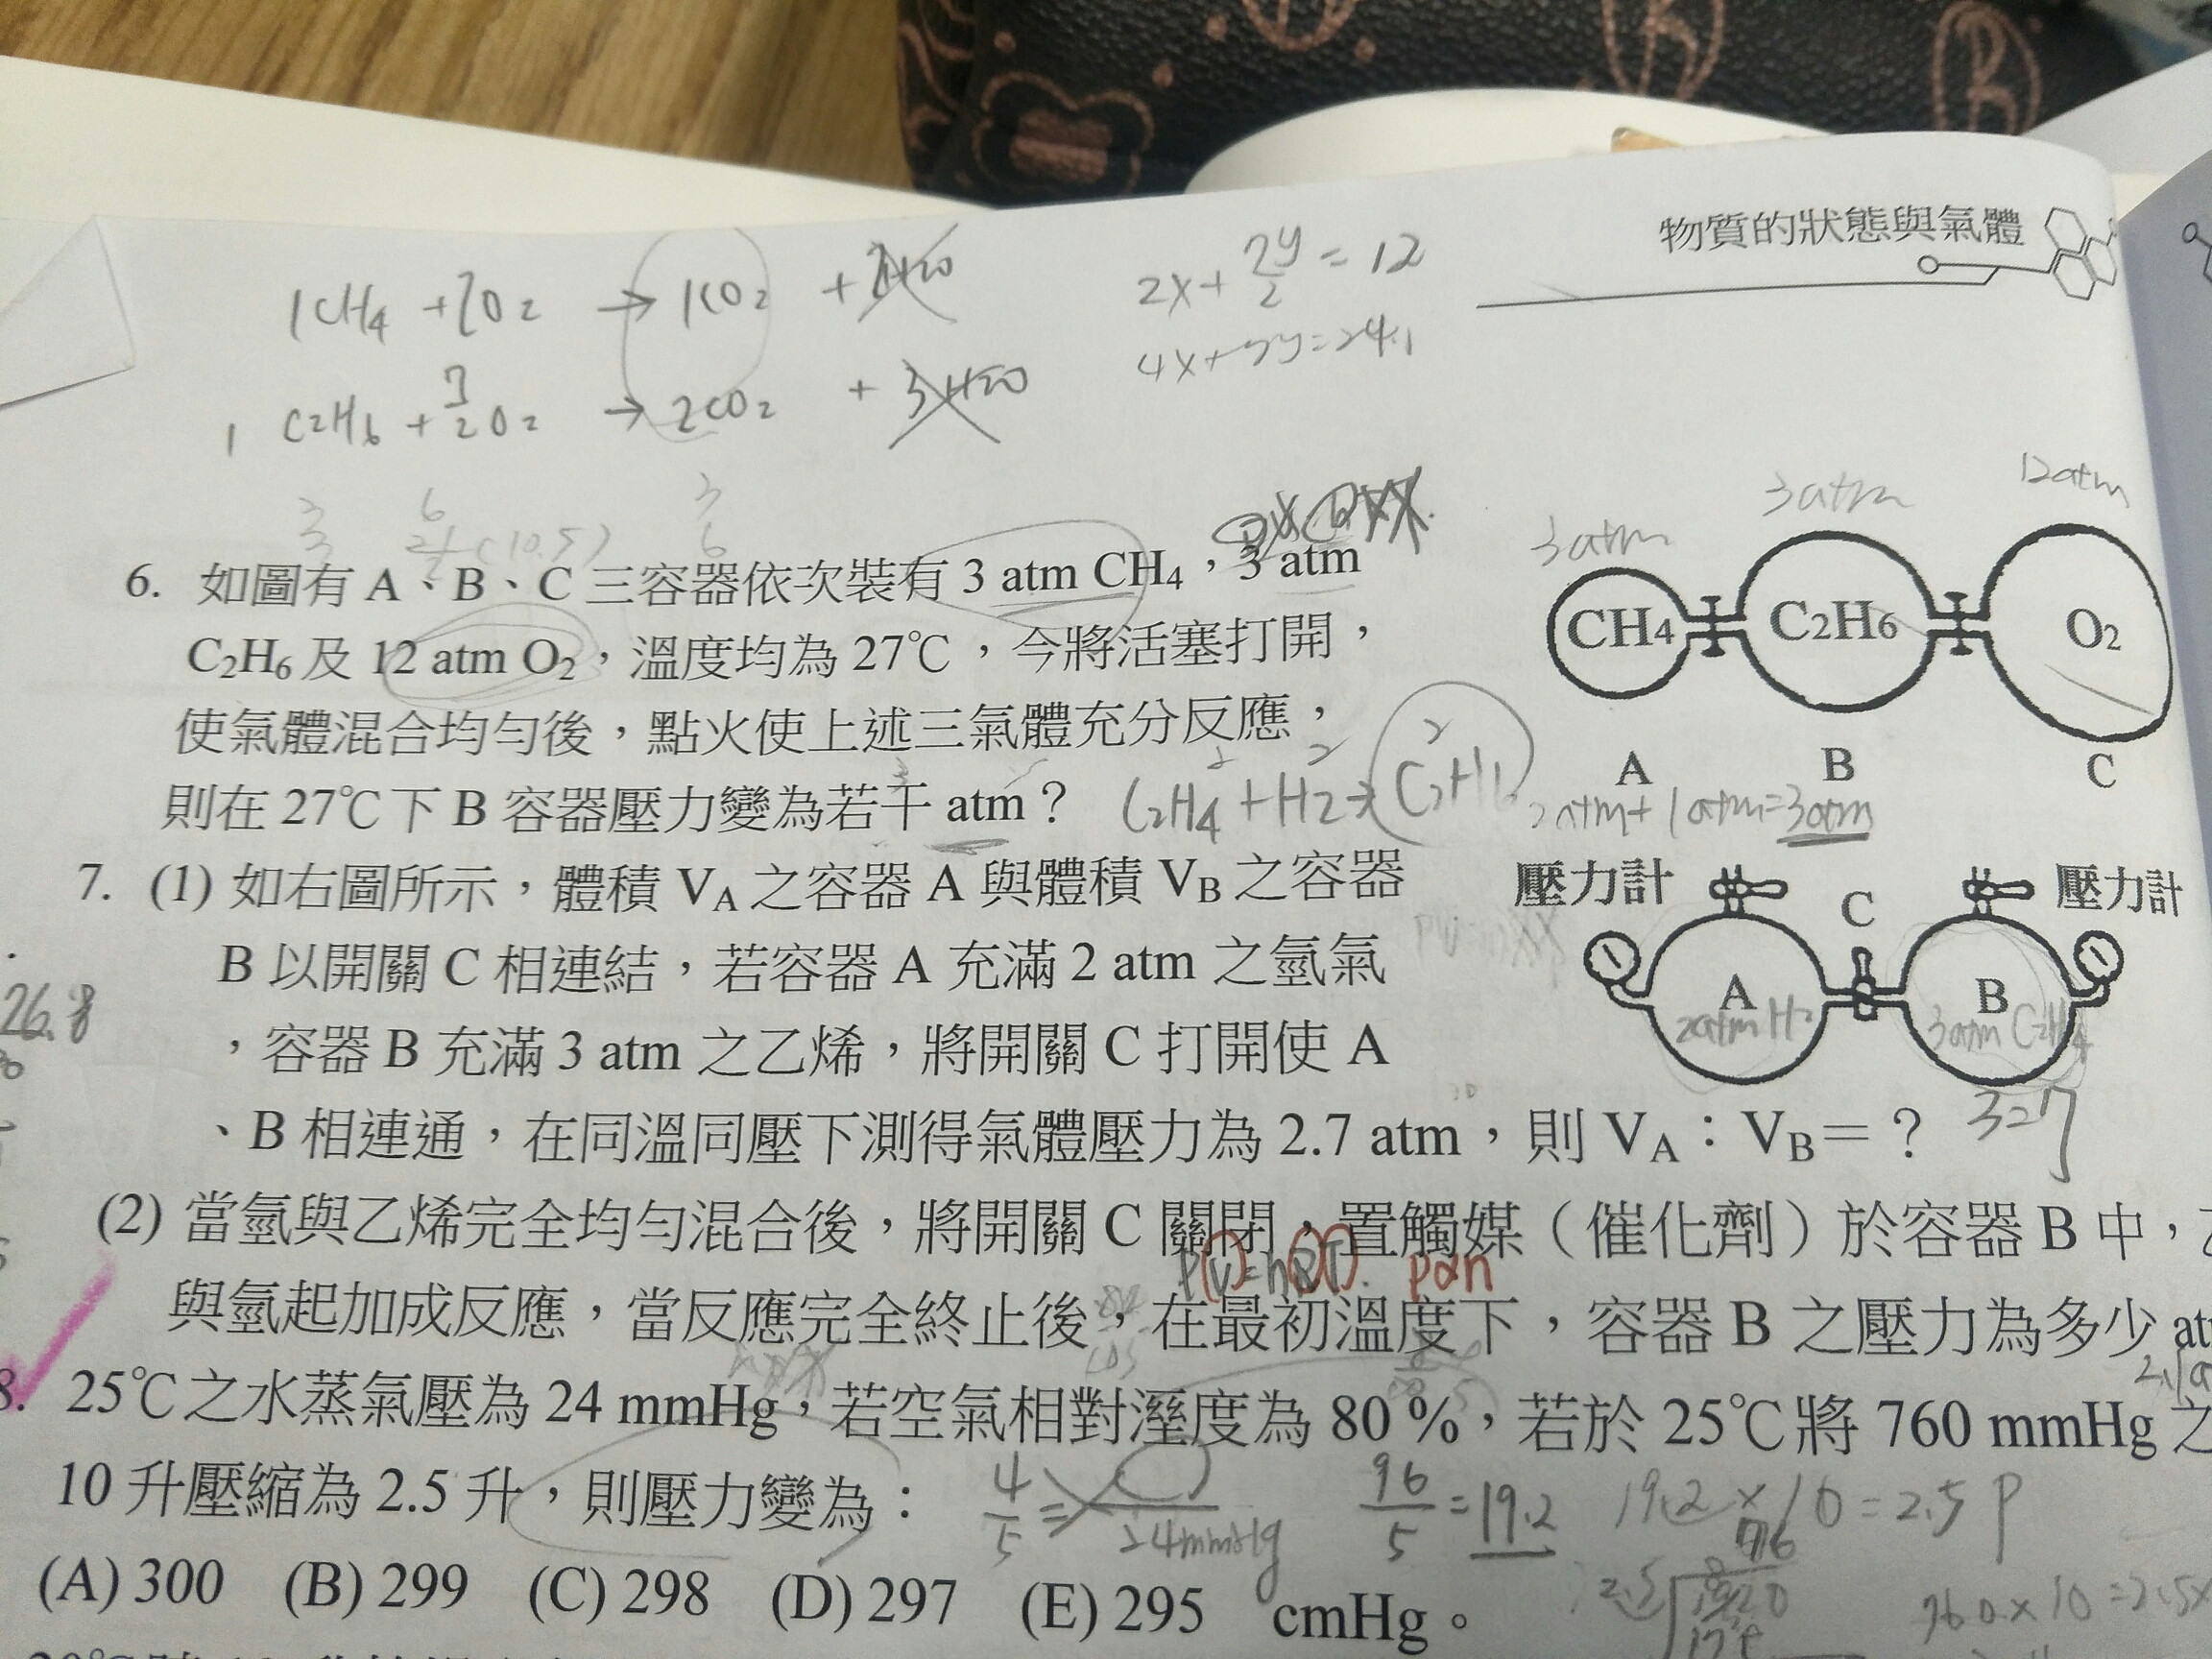 物質的狀態與氣體
1CH4 + 2O2 → 1CO2 +
2x + 7y/2 = 12
4x + 7y = 24.1
1 C2H6 + 7/2 O2 → 2CO2 + 3H2O
3 6 3
(10.5) 6
3atm 3atm 12atm
6. 如圖有 A、B、C 三容器依次裝有 3 atm CH4，3 atm
C2H6 及 12 atm O2，溫度均為 27℃，今將活塞打開，
使氣體混合均勻後，點火使上述三氣體充分反應，
則在 27℃下 B 容器壓力變為若干 atm？
CH4 C2H6 O2
A B C
C2H4 + H2 → C2H6
2atm + 1atm = 3atm
7. (1) 如右圖所示，體積 VA 之容器 A 與體積 VB 之容器
B 以開關 C 相連結，若容器 A 充滿 2 atm 之氫氣
，容器 B 充滿 3 atm 之乙烯，將開關 C 打開使 A
、B 相連通，在同溫同壓下測得氣體壓力為 2.7 atm，則 VA：VB＝？
壓力計 C 壓力計
A B
2atm H2 3atm C2H4
26.8
(2) 當氫與乙烯完全均勻混合後，將開關 C 關閉，置觸媒（催化劑）於容器 B 中，
PV=nRT. P∝n
與氫起加成反應，當反應完全終止後，在最初溫度下，容器 B 之壓力為多少
8. 25℃之水蒸氣壓為 24 mmHg，若空氣相對溼度為 80 %，若於 25℃將 760 mmHg 之
10 升壓縮為 2.5 升，則壓力變為：
4/5 = 24mmHg
96/5 = 19.2
19.2 × 10 = 2.5 P
(A) 300 (B) 299 (C) 298 (D) 297 (E) 295 cmHg。
760 × 10 = 2.5×